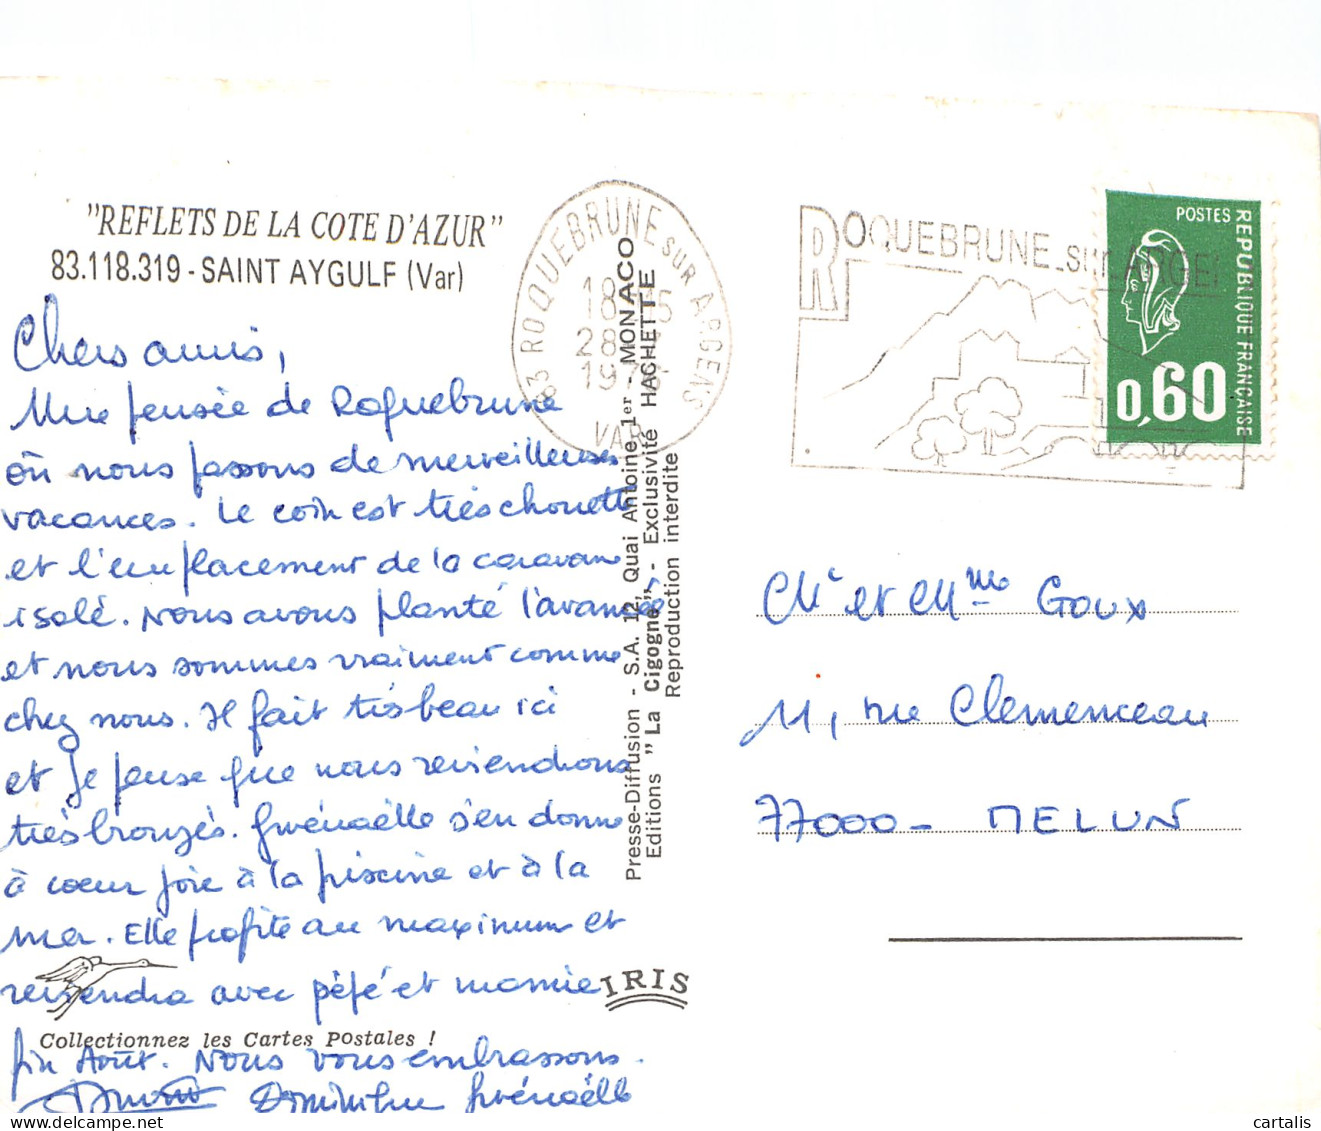 "REFLETS DE LA COTE D'AZUR"
83.118.319 - SAINT AYGULF (Var)
Chers amis,
Une pensée de Roquebrune
où nous passons de merveilleuses
vacances. Le coin est très chouette
et l'emplacement de la caravane
isolé. Nous avons planté l'avancée
et nous sommes vraiment comme
chez nous. Il fait très beau ici
et je pense que nous reviendrons
très bronzés. Gwénaëlle s'en donne
à coeur joie à la piscine et à la
mer. Elle profite au maximum et
reviendra avec pépé et mamie
fin Août. Nous vous embrassons.
Dominique Gwénaëlle
Collectionnez les Cartes Postales !
IRIS
Presse-Diffusion - S.A. 12, Quai Antoine 1er - MONACO
Editions "La Cigogne", - Exclusivité HACHETTE
Reproduction interdite
83 ROQUEBRUNE SUR ARGENS
28
VAR
ROQUEBRUNE SUR ARGENS
POSTES
REPUBLIQUE FRANÇAISE
0,60
Mr et Mme Goux
11, rue Clemenceau
77000 - MELUN
cartalis.com